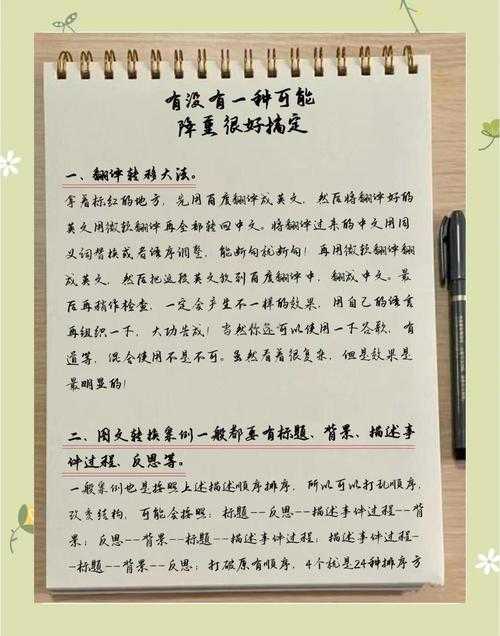 有没有一种可能
降重很好搞定
一、翻译转移大法。
拿着标红的地方，先用百度翻译成英文，然后将翻译好的
英文用微软翻译再全部转回中文。将翻译过来的中文用同
义词替换或者语序调整，能断句就断句！再用微软翻译翻
成英文，然后把这段英文放到百度翻译中，翻成中文。最
后再稍作检查，一定会产生不一样的效果，用自己的语言
再组织一下，大功告成！当然你还可以使用一下谷歌，有
道等，混合使用不是不可。虽然看着很复杂，但是效果是
最明显的！
二、图文转换案例一般都要有标题、背景、描述事
件过程、反思等。
一般案例也是按照上述描述顺序排序，所以可以打乱顺序，
改变结构，可能会按照：标题--反思--描述事件过程--背
景；反思--背景--标题--描述事件过程；描述事件过程-
-标题--背景--反思；打破原有顺序，4个就是24种排序方